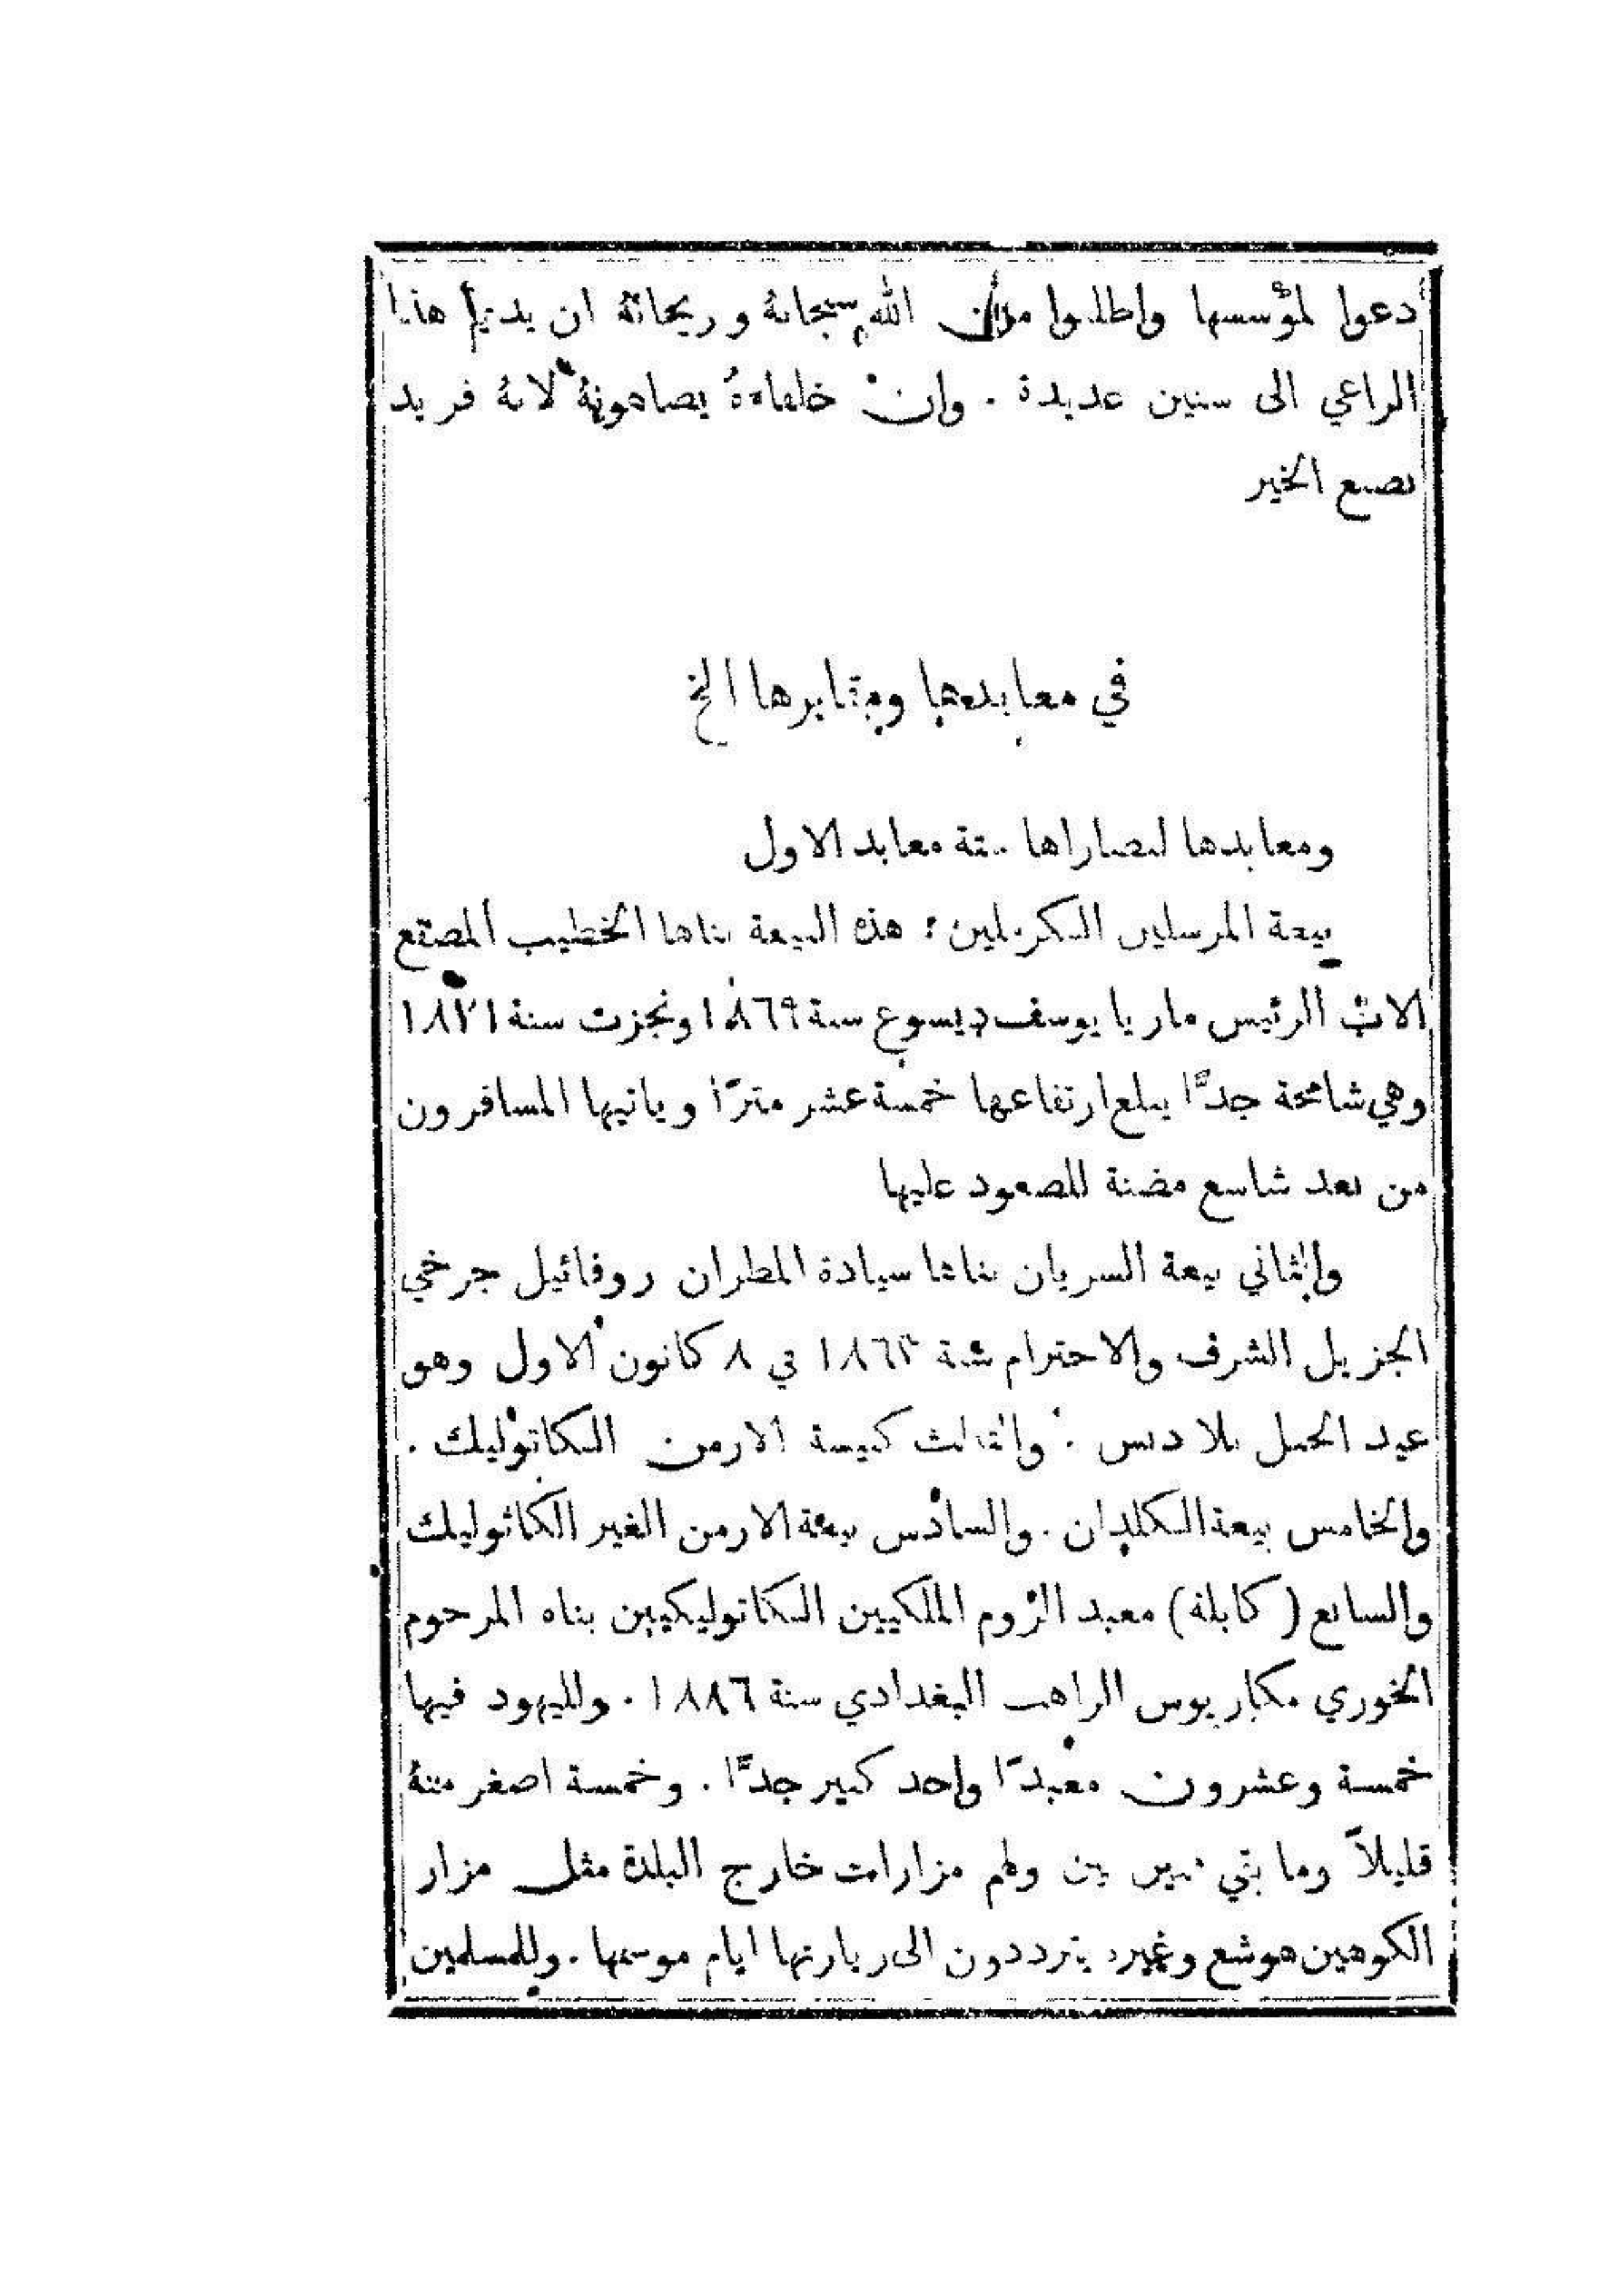 دعوا لمؤسسها واطلبوا من الله سبحانهُ وريحانهُ ان يديم هذا
الراعي الى سنين عديدة . وان خلفاءهُ يضاهونهُ لانهُ فريد
بصنع الخير
في معابدها ومقابرها الخ
ومعابدها لنصاراها ستة معابد الاول
بيعة المرسلين الكرملين : هذه البيعة بناها الخطيب المصقع
الاب الرئيس ماريا يوسف ديسوع سنة ١٨٦٩ ونجزت سنة ١٨٧١
وهي شامخة جدًّا يبلغ ارتفاعها خمسة عشر مترًا وياتيها المسافرون
من بعد شاسع مضنة للصعود عليها
والثاني بيعة السريان بناها سيادة المطران روفائيل جرخي
الجزيل الشرف والاحترام سنة في ٨ كانون الاول وهو
عيد الحبل بلا دنس . والثالث كنيسة الارمن الكاتوليك .
والخامس بيعة الكلدان . والسادس بيعة الارمن الغير الكاثوليك
والسابع ( كابلة ) معبد الروم الملكيين الكاتوليكيين بناه المرحوم
الخوري مكاريوس الراهب البغدادي سنة ١٨٨٦ . ولليهود فيها
خمسة وعشرون معبدًا واحد كبير جدًّا . وخمسة اصغر منهُ
قليلاً وما بقي بين بين ولهم مزارات خارج البلدة مثل مزار
الكوهين هوشع وغيره يترددون الى زيارتها ايام موسمها . وللمسلمين